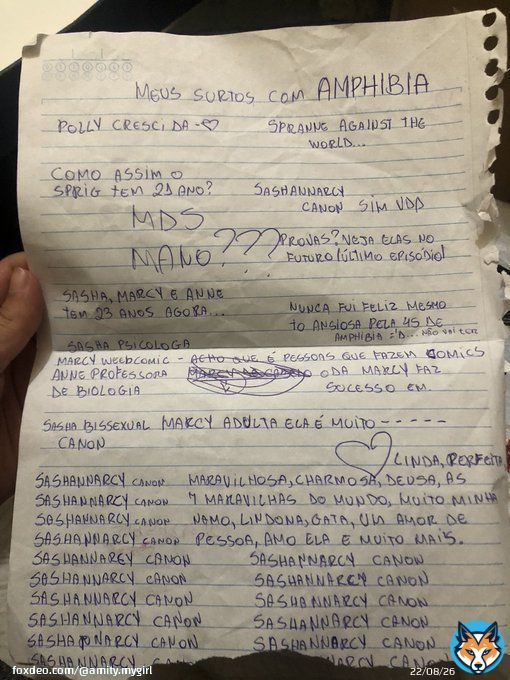 MEUS SURTOS COM AMPHIBIA
POLLY CRESCIDA - ♡ SPRANNE AGAINST THE
WORLD...
COMO ASSIM O
SPRIG TEM 21 ANO? SASHANNARCY
CANON SIM VDD
MDS
MANO??? PROVAS? VEJA ELAS NO
FUTURO (ÚLTIMO EPISÓDIO)
SASHA, MARCY E ANNE
TEM 23 ANOS AGORA... NUNCA FUI FELIZ MESMO
TO ANSIOSA PELA 4S DE
AMPHIBIA :'D... NÃO VAI TER
SASHA PSICOLOGA
MARCY WEEBCOMIC - ACHO QUE É PESSOAS QUE FAZEM COMICS
ANNE PROFESSORA ODA MARCY FAZ
DE BIOLOGIA SUCESSO EM.
SASHA BISSEXUAL MARCY ADULTA ELA É MUITO - - - - -
CANON
♡ LINDA, PERFEITA
SASHANNARCY CANON MARAVILHOSA, CHARMOSA, DEUSA, AS
SASHANNARCY CANON 7 MARAVILHAS DO MUNDO, MUITO MINHA
SASHANNARCY CANON NAMO, LINDONA, GATA, UM AMOR DE
SASHANNARCY CANON PESSOA, AMO ELA E MUITO MAIS.
SASHANNARCY CANON SASHANNARCY CANON
SASHANNARCY CANON SASHANNARCY CANON
SASHANNARCY CANON SASHANNARCY CANON
SASHANNARCY CANON SASHANNARCY CANON
SASHANNARCY CANON SASHANNARCY CANON
SASHANNARCY CANON SASHANNARCY CANON
foxdeo.com/@amity.mygirl 22/08/26